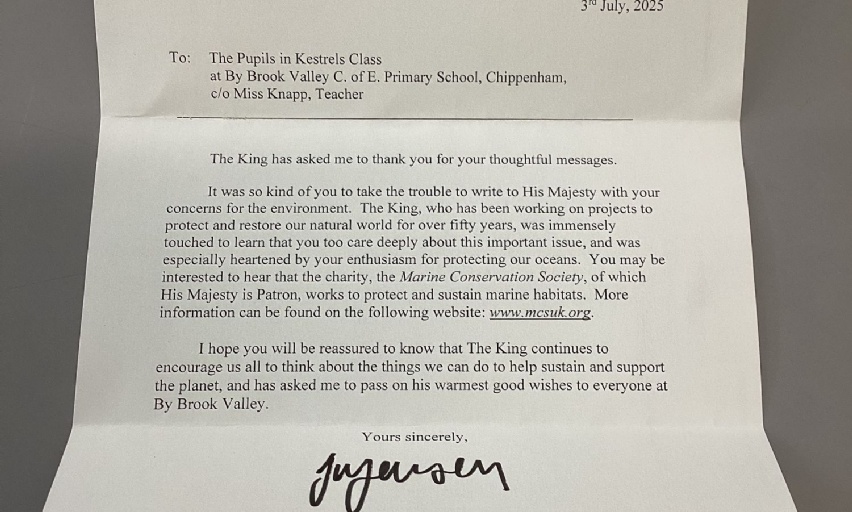 3rd July, 2025
To: The Pupils in Kestrels Class
at By Brook Valley C. of E. Primary School, Chippenham,
c/o Miss Knapp, Teacher
The King has asked me to thank you for your thoughtful messages.
It was so kind of you to take the trouble to write to His Majesty with your
concerns for the environment. The King, who has been working on projects to
protect and restore our natural world for over fifty years, was immensely
touched to learn that you too care deeply about this important issue, and was
especially heartened by your enthusiasm for protecting our oceans. You may be
interested to hear that the charity, the Marine Conservation Society, of which
His Majesty is Patron, works to protect and sustain marine habitats. More
information can be found on the following website: www.mcsuk.org.
I hope you will be reassured to know that The King continues to
encourage us all to think about the things we can do to help sustain and support
the planet, and has asked me to pass on his warmest good wishes to everyone at
By Brook Valley.
Yours sincerely,